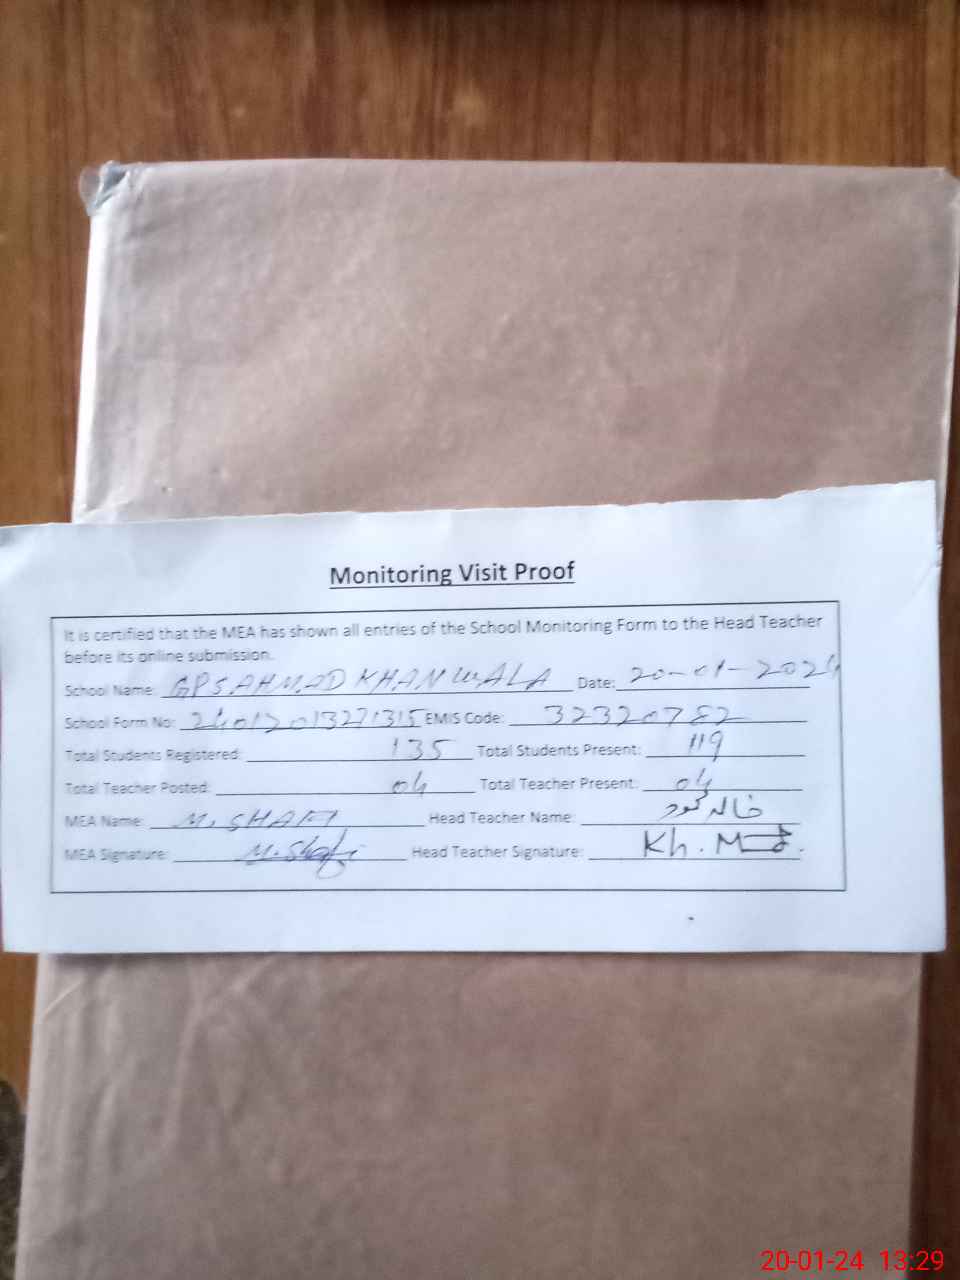 Monitoring Visit Proof
It is certified that the MEA has shown all entries of the School Monitoring Form to the Head Teacher
before its online submission.
School Name: GPS AHMAD KHAN WALA Date: 20-01-2024
School Form No: 24012013271315 EMIS Code: 32320782
Total Students Registered: 135 Total Students Present: 119
Total Teacher Posted: 04 Total Teacher Present: 04
MEA Name: M. SHAFI Head Teacher Name: خالد محمود
MEA Signature: M. Shafi Head Teacher Signature: Kh. M
20-01-24 13:29